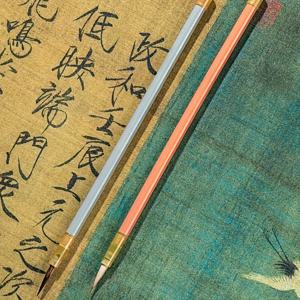 政和壬辰上元之次
低映端門衆
飛鳴於